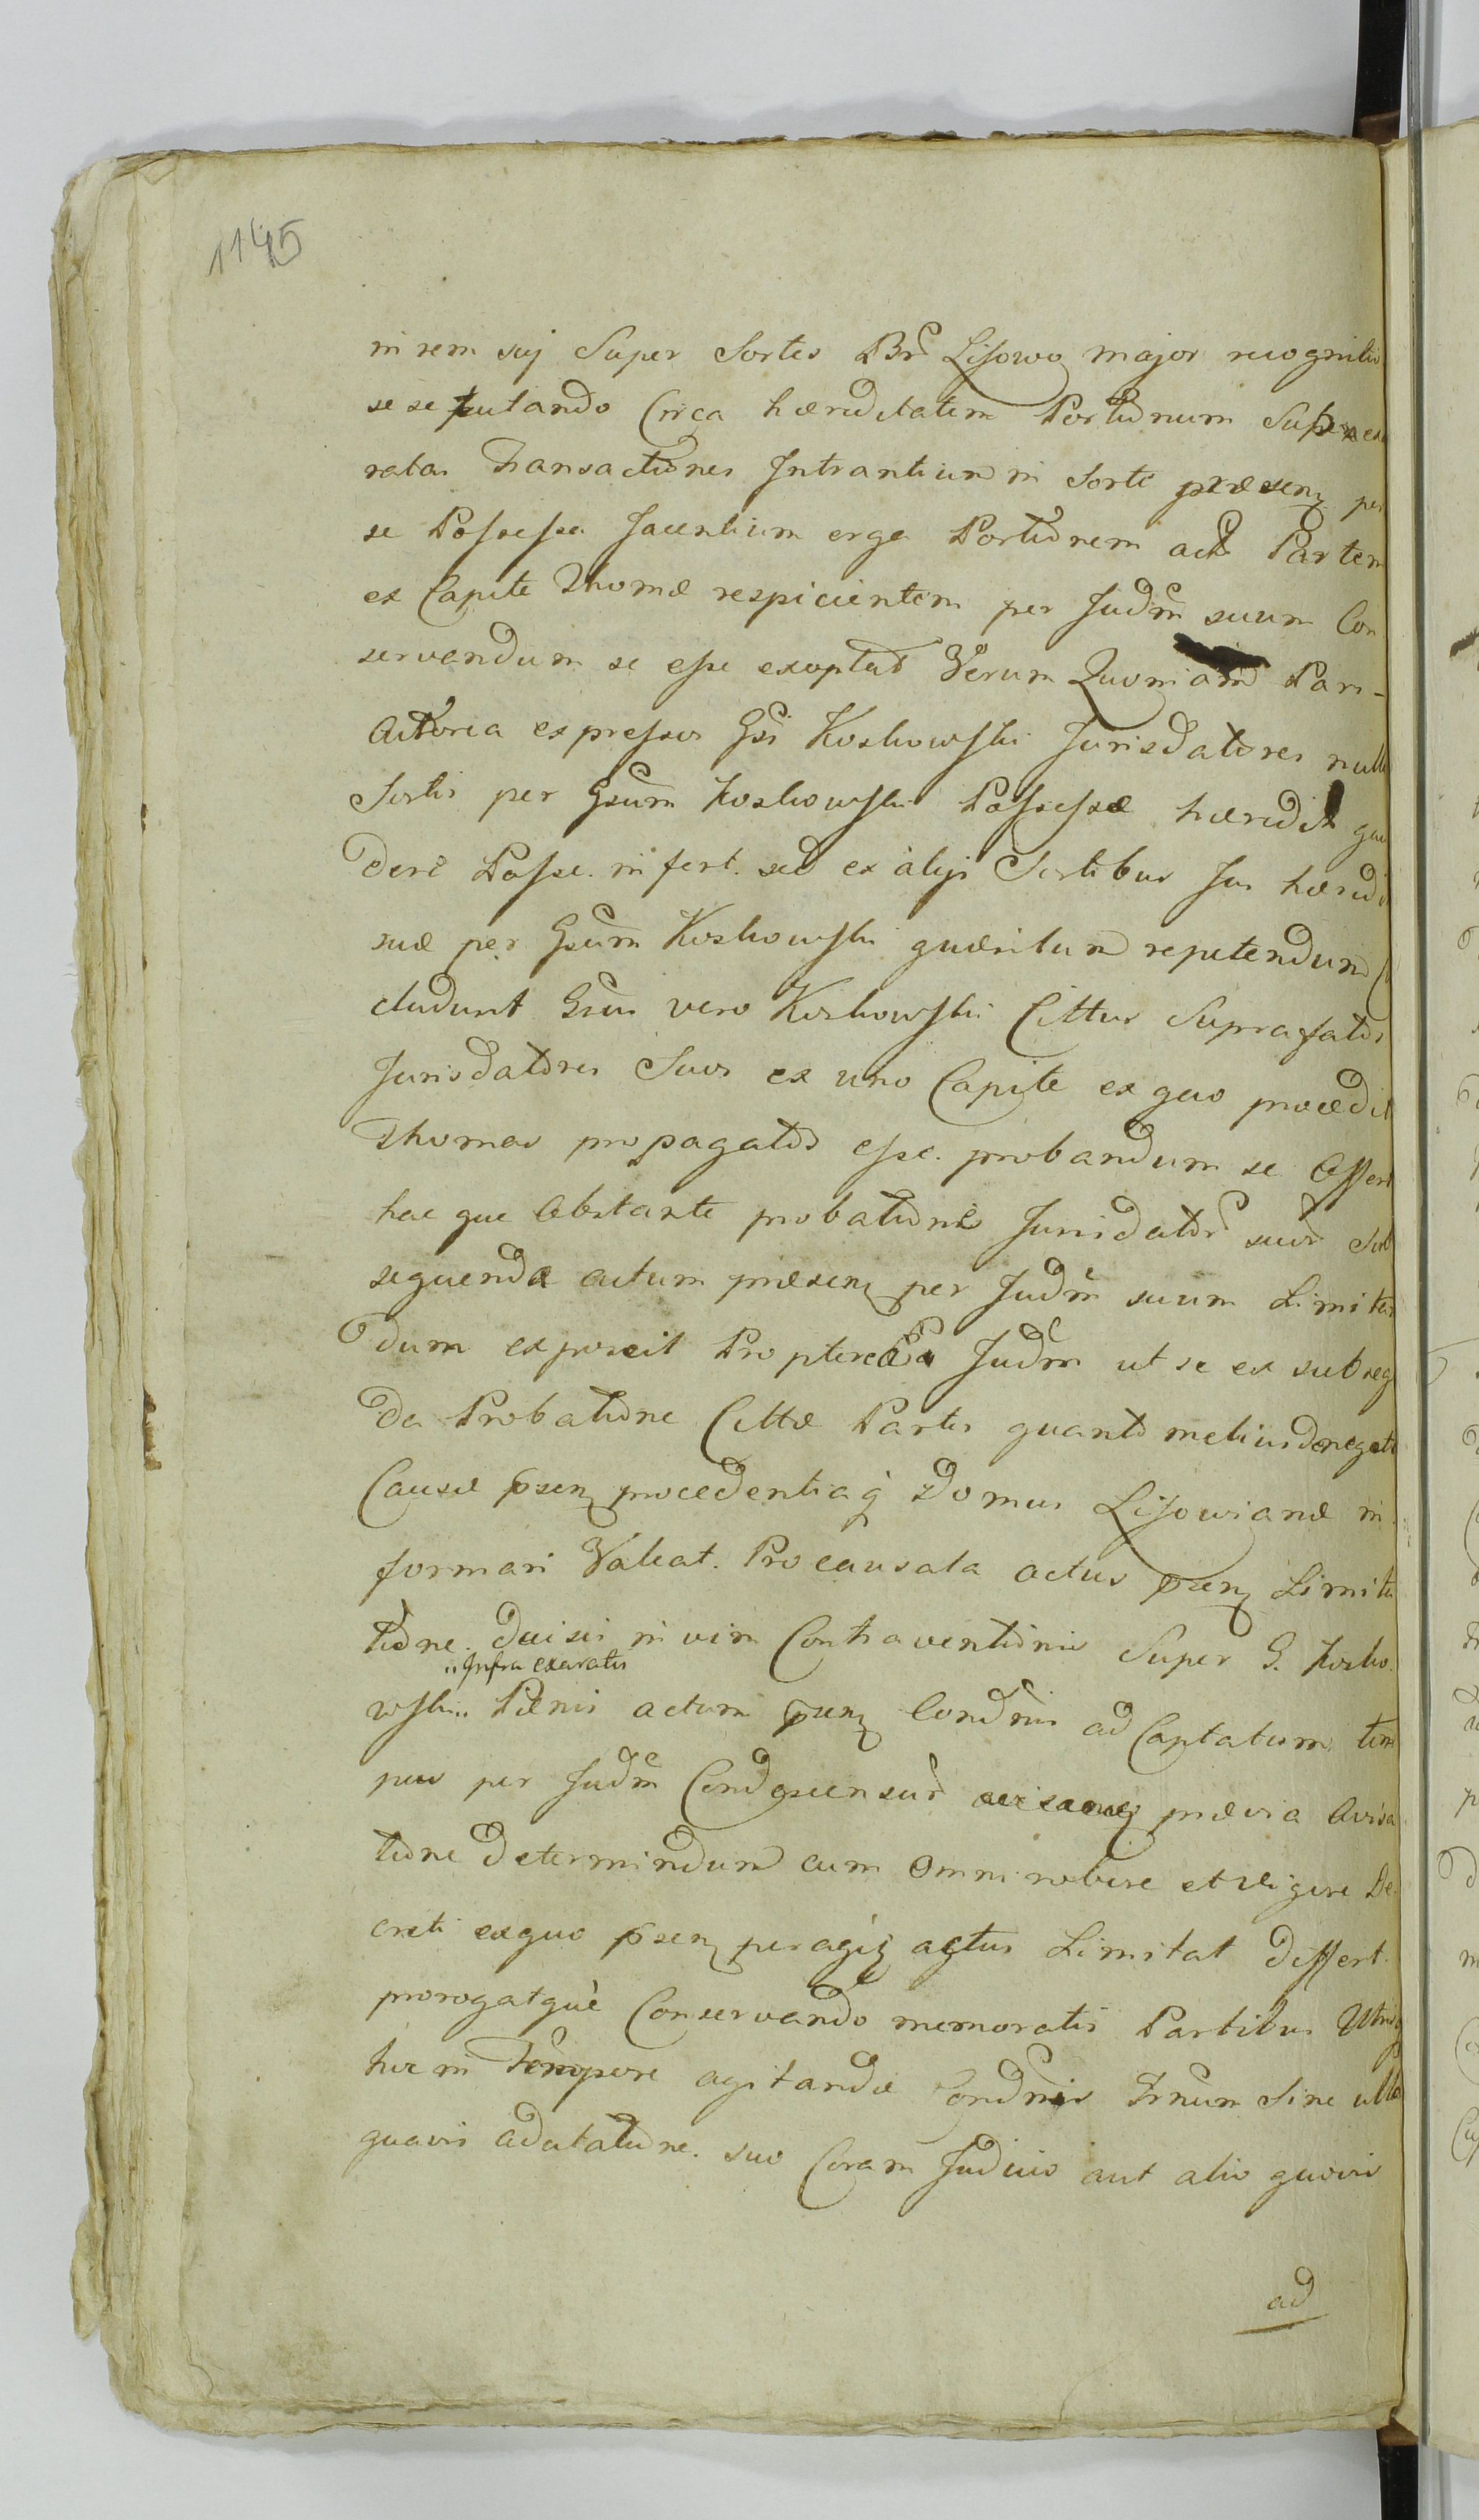 1145
in rem suj Super Sortes Br̃ Lisowo major recognitio
se se putando Circa hæreditatem Portionum Super exa
ratas Transactiones Intrantium in Sorte præsenz per
se Possessa Jacentium erga Portionem acto Partem
ex Capite Thomæ respicientem per Judm̃ suum Con
servandum se esse exoptat Verum Quoniam Pars
Actorea expressos Gsi Koskowski Jurisdatores nulla
Sortis per Gsum Koskowski Possessæ hæredit gau
dere Posse. infert. sed ex alijs Sortibus Jus hæredit
suæ per Gsum Koskowski quæsitum repetendum
cludunt Gsus vero Koskowski Cittus Suprafatos
Jurisdatores Suos ex uno Capite ex quo procedit
Thomas propagatos esse. probandum se Offert
hac que Obstante probatione Jurisdator̃ suor̃ Sub
sequenda actum præsenz per Judm̃ suum Limitan
dum exposcit Propterea Judm̃ ut se ex subseq
da Probatione Cittæ Partis quanto melius de negotio
Causæ psenz procedentiaq̃ Domus Lisowianæ in
formari Valeat. Pro causata actus psenz Limita
tione. Decisis in vim Contraventionis Super G. Kosko
wski ,, Infra exaratis ,, Pænis actum psenz Condnis ad Captatum tem
pus per Judm̃ Condescensur̃ prævia Avisa
tione determindum cum omni robore et vigore De
creti ex quo psenz peragiẓ actus Limitat differt
prorogatquè Conservando memoratis Partibus Utrisq̃
hic in Tempore agitandæ Condnis Trnum Sine ulla
quavis adcitatione. suo Coram Judicio aut alio quovis
ad